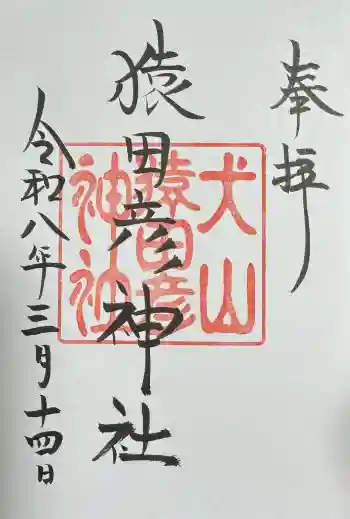 奉拝
犬山
猿田彦
神社
猿田彦神社
令和八年三月十四日